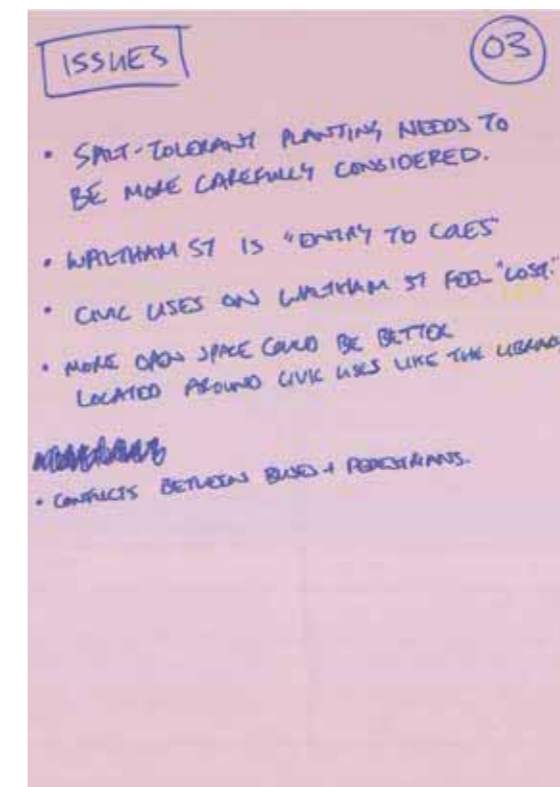 ISSUES
03
• SALT-TOLERANT PLANTING NEEDS TO
BE MORE CAREFULLY CONSIDERED.
• WALTHAM ST IS "ENTRY TO COLES"
• CIVIC USES ON WALTHAM ST FEEL "LOST."
• MORE OPEN SPACE COULD BE BETTER
LOCATED AROUND CIVIC USES LIKE THE LIBRARY
• CONFLICTS BETWEEN BUSES + PEDESTRIANS.